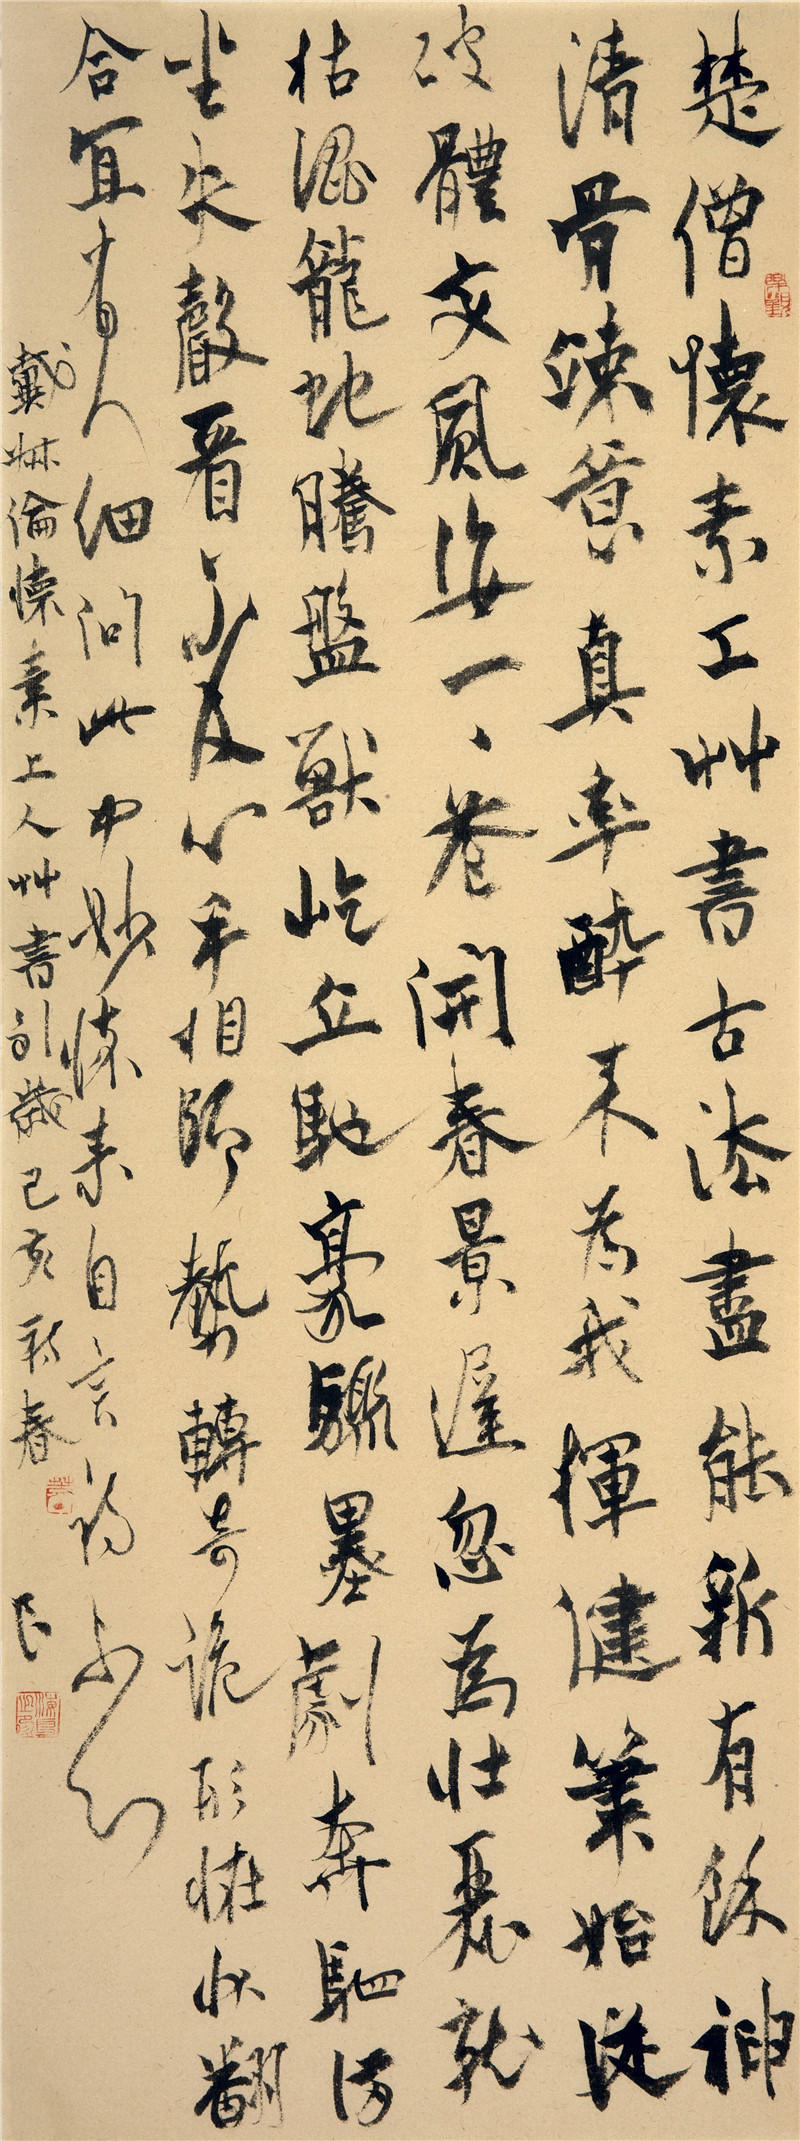 楚僧懷素工艸書古法盡能新有餘神
清骨竦意真率醉來為我揮健筆始從
破體變風姿一一花開春景遲忽為壯麗就
枯澀龍蛇騰盤獸屹立馳毫驟墨劇奔駟滿
坐失聲看不及心手相師勢轉奇詭形怪狀翻
合宜有人細問此中妙懷素自言初不知
戴叔倫懷素上人艸書引歲己亥新春